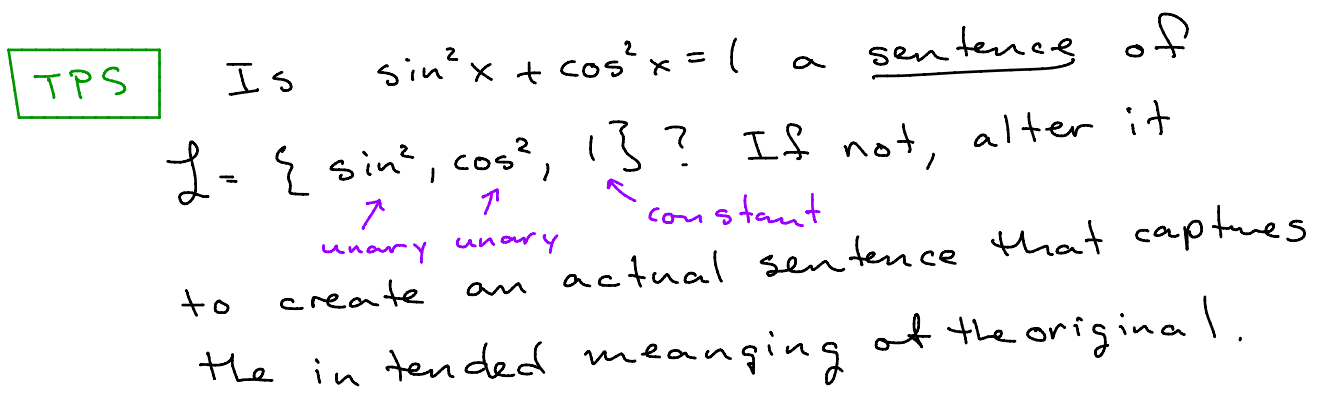 TPS Is sin²x + cos²x = 1 a sentence of
L = { sin², cos², 1 } ? If not, alter it
unary unary constant
to create an actual sentence that captures
the intended meanging of the original.